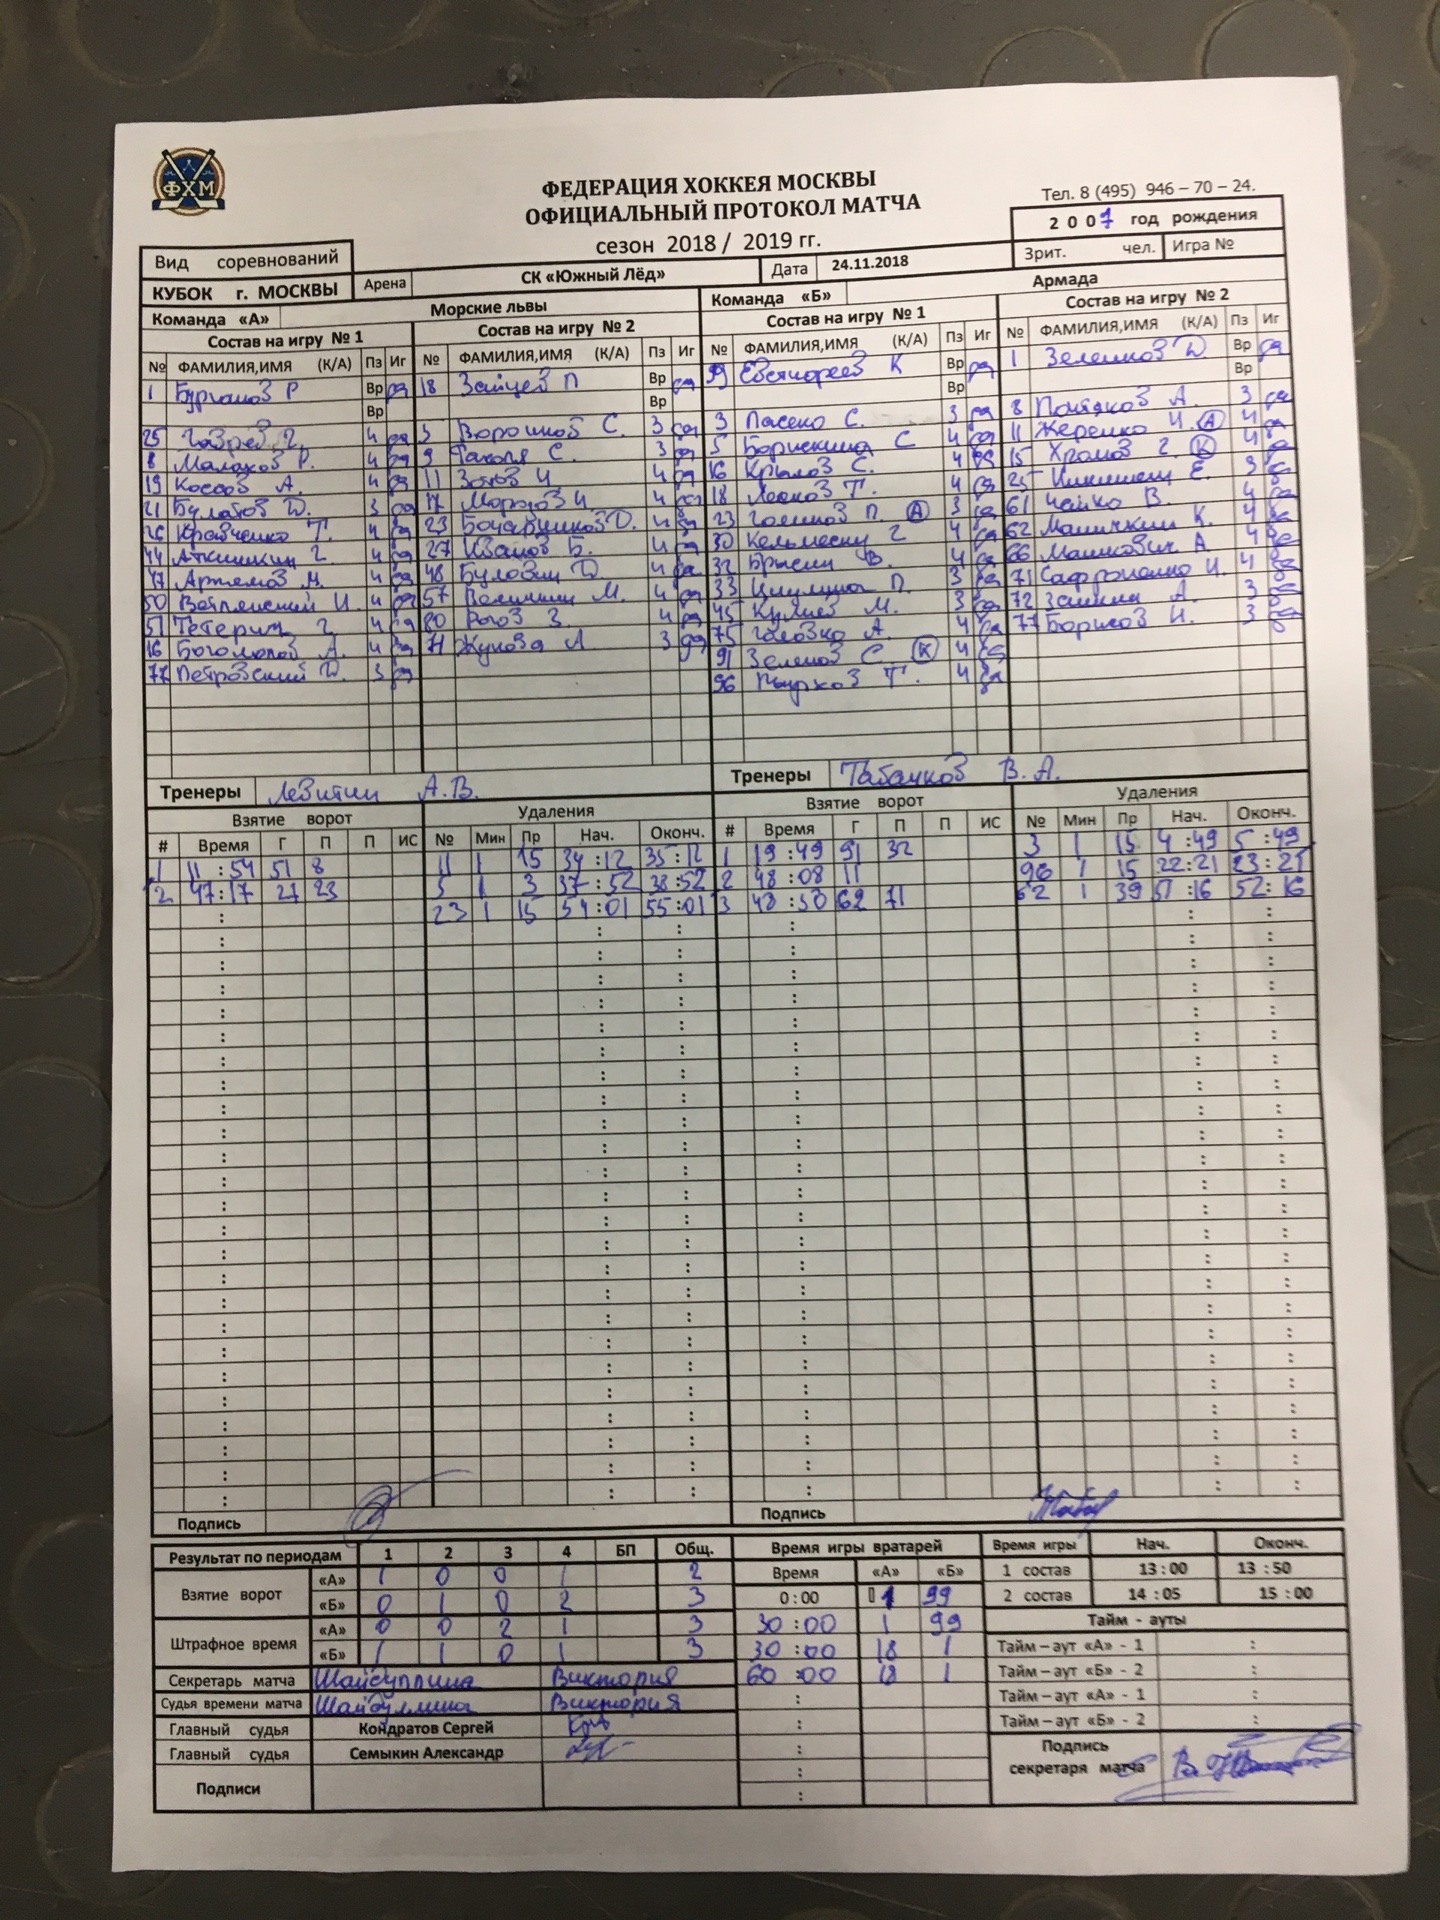 ФХМ
ФЕДЕРАЦИЯ ХОККЕЯ МОСКВЫ
ОФИЦИАЛЬНЫЙ ПРОТОКОЛ МАТЧА
Тел. 8 (495) 946 – 70 – 24.
сезон 2018 / 2019 гг.
2007 год рождения
Вид соревнований
Арена СК «Южный Лёд» Дата 24.11.2018 Зрит. чел. Игра №
КУБОК г. МОСКВЫ
Команда «А» Морские львы Команда «Б» Армада
Состав на игру № 1 Состав на игру № 2 Состав на игру № 1 Состав на игру № 2
№ ФАМИЛИЯ,ИМЯ (К/А) Пз Иг № ФАМИЛИЯ,ИМЯ (К/А) Пз Иг № ФАМИЛИЯ,ИМЯ (К/А) Пз Иг № ФАМИЛИЯ,ИМЯ (К/А) Пз Иг
1 Бурганов Р Вр да 18 Зайцев П Вр да 99 Евстифеев К Вр да 1 Зеленков Д Вр да
Вр Вр Вр Вр
25 4 да 3 Воронков С. 3 да 3 Пасеко С. 3 да 8 Поляков А. 3 да
8 Малахов Р. 4 да 9 С. 3 да 5 Борискина С 4 да 11 Жеренко И. (А) 4 да
19 Коссов А. 4 да 11 Зотов И 4 да 16 Крылов С. 4 да 15 Хромов Г. (К) 4 да
21 Булатов Д. 3 да 17 Морозов И. 4 да 18 Леонов Т. 4 да 25 Е. 3 да
26 Кравченко Т. 4 да 23 Бочарников Д. 4 да 23 П. (А) 3 да 61 Чайко В. 4 да
44 Аткишкин Г. 4 да 27 Иванов Б. 4 да 30 Кельмеску Г 4 да 62 Маничкин К. 4 да
47 Артемов М. 4 да 48 Д. 4 да 32 Брысин В. 4 да 66 Машкович А. 4 да
50 И. 4 да 57 М. 4 да 33 П. 3 да 71 Сафроненко И. 4 да
51 Тетерин Г. 4 да 80 Рогов З. 4 да 45 Кулиев М. 3 да 72 Заикина А. 3 да
16 Боголюбов А. 4 да 71 Жукова А 3 да 75 Головко А. 4 да 77 Борисов И. 3 да
77 Петровский Д. 3 да 91 Зеленов С. (К) 4 да
96 Т. 4 да
Тренеры Левитин А.В. Тренеры Табачков В.А.
Взятие ворот Удаления Взятие ворот Удаления
# Время Г П П ИС № Мин Пр Нач. Оконч. # Время Г П П ИС № Мин Пр Нач. Оконч.
1 11 : 54 51 8 11 1 15 34 : 12 35 : 12 1 19 : 49 91 32 3 1 15 4 : 49 5 : 49
2 47 : 17 27 23 5 1 3 37 : 52 38 : 52 2 48 : 08 11 96 1 15 22 : 21 23 : 21
23 1 15 54 : 01 55 : 01 3 48 : 50 62 71 62 1 39 51 : 16 52 : 16
Подпись Подпись
Результат по периодам 1 2 3 4 БП Общ. Время игры вратарей Время игры Нач. Оконч.
Взятие ворот «А» 1 0 0 1 2 Время «А» «Б» 1 состав 13 : 00 13 : 50
«Б» 0 1 0 2 3 0 : 00 1 99 2 состав 14 : 05 15 : 00
Штрафное время «А» 0 0 2 1 3 30 : 00 1 99 Тайм - ауты
«Б» 1 1 0 1 3 30 : 00 18 1 Тайм – аут «А» - 1 :
Секретарь матча Шайбуллина Виктория 60 : 00 18 1 Тайм – аут «Б» - 2 :
Судья времени матча Шайбуллина Виктория : Тайм – аут «А» - 1 :
Главный судья Кондратов Сергей : Тайм – аут «Б» - 2 :
Главный судья Семыкин Александр : Подпись
Подписи : секретаря матча